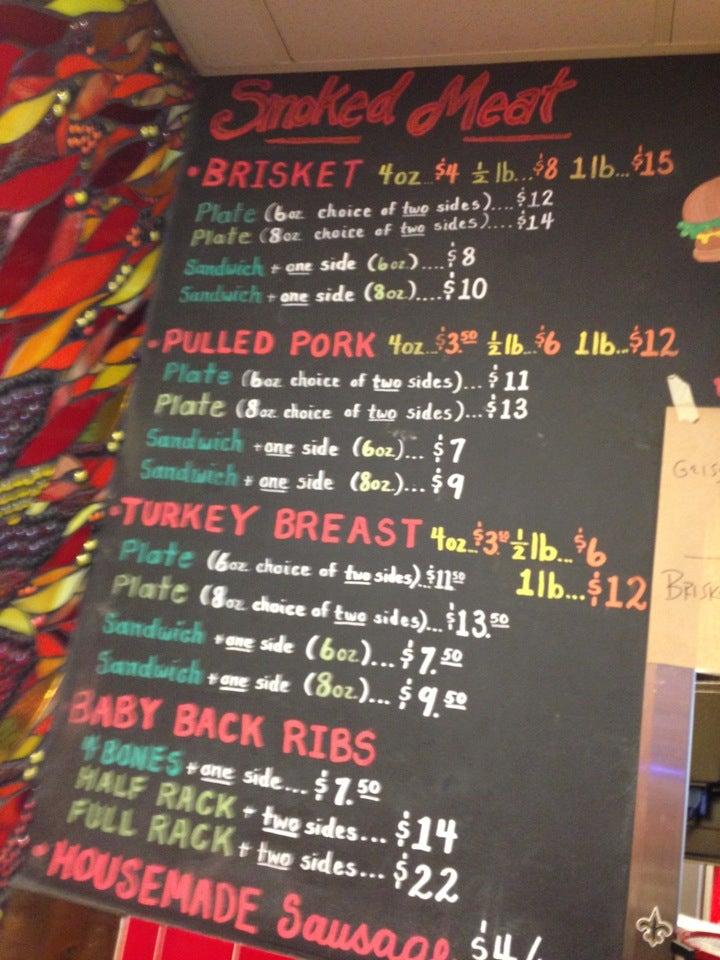 Smoked Meat
• BRISKET 4oz...$4 ½ lb...$8 1lb...$15
Plate (6oz choice of two sides)....$12
Plate (8oz choice of two sides)....$14
Sandwich + one side (6oz)....$8
Sandwich + one side (8oz)....$10
• PULLED PORK 4oz...$3.50 ½ lb...$6 1lb...$12
Plate (6oz choice of two sides)...$11
Plate (8oz choice of two sides)...$13
Sandwich + one side (6oz)...$7
Sandwich + one side (8oz)...$9
• TURKEY BREAST 4oz...$3.50 ½ lb...$6
1lb...$12
Plate (6oz choice of two sides)..$11.50
Plate (8oz choice of two sides)...$13.50
Sandwich + one side (6oz)...$7.50
Sandwich + one side (8oz)...$9.50
BABY BACK RIBS
4 BONES + one side...$7.50
HALF RACK + two sides...$14
FULL RACK + two sides...$22
• HOUSEMADE Sausage $4/